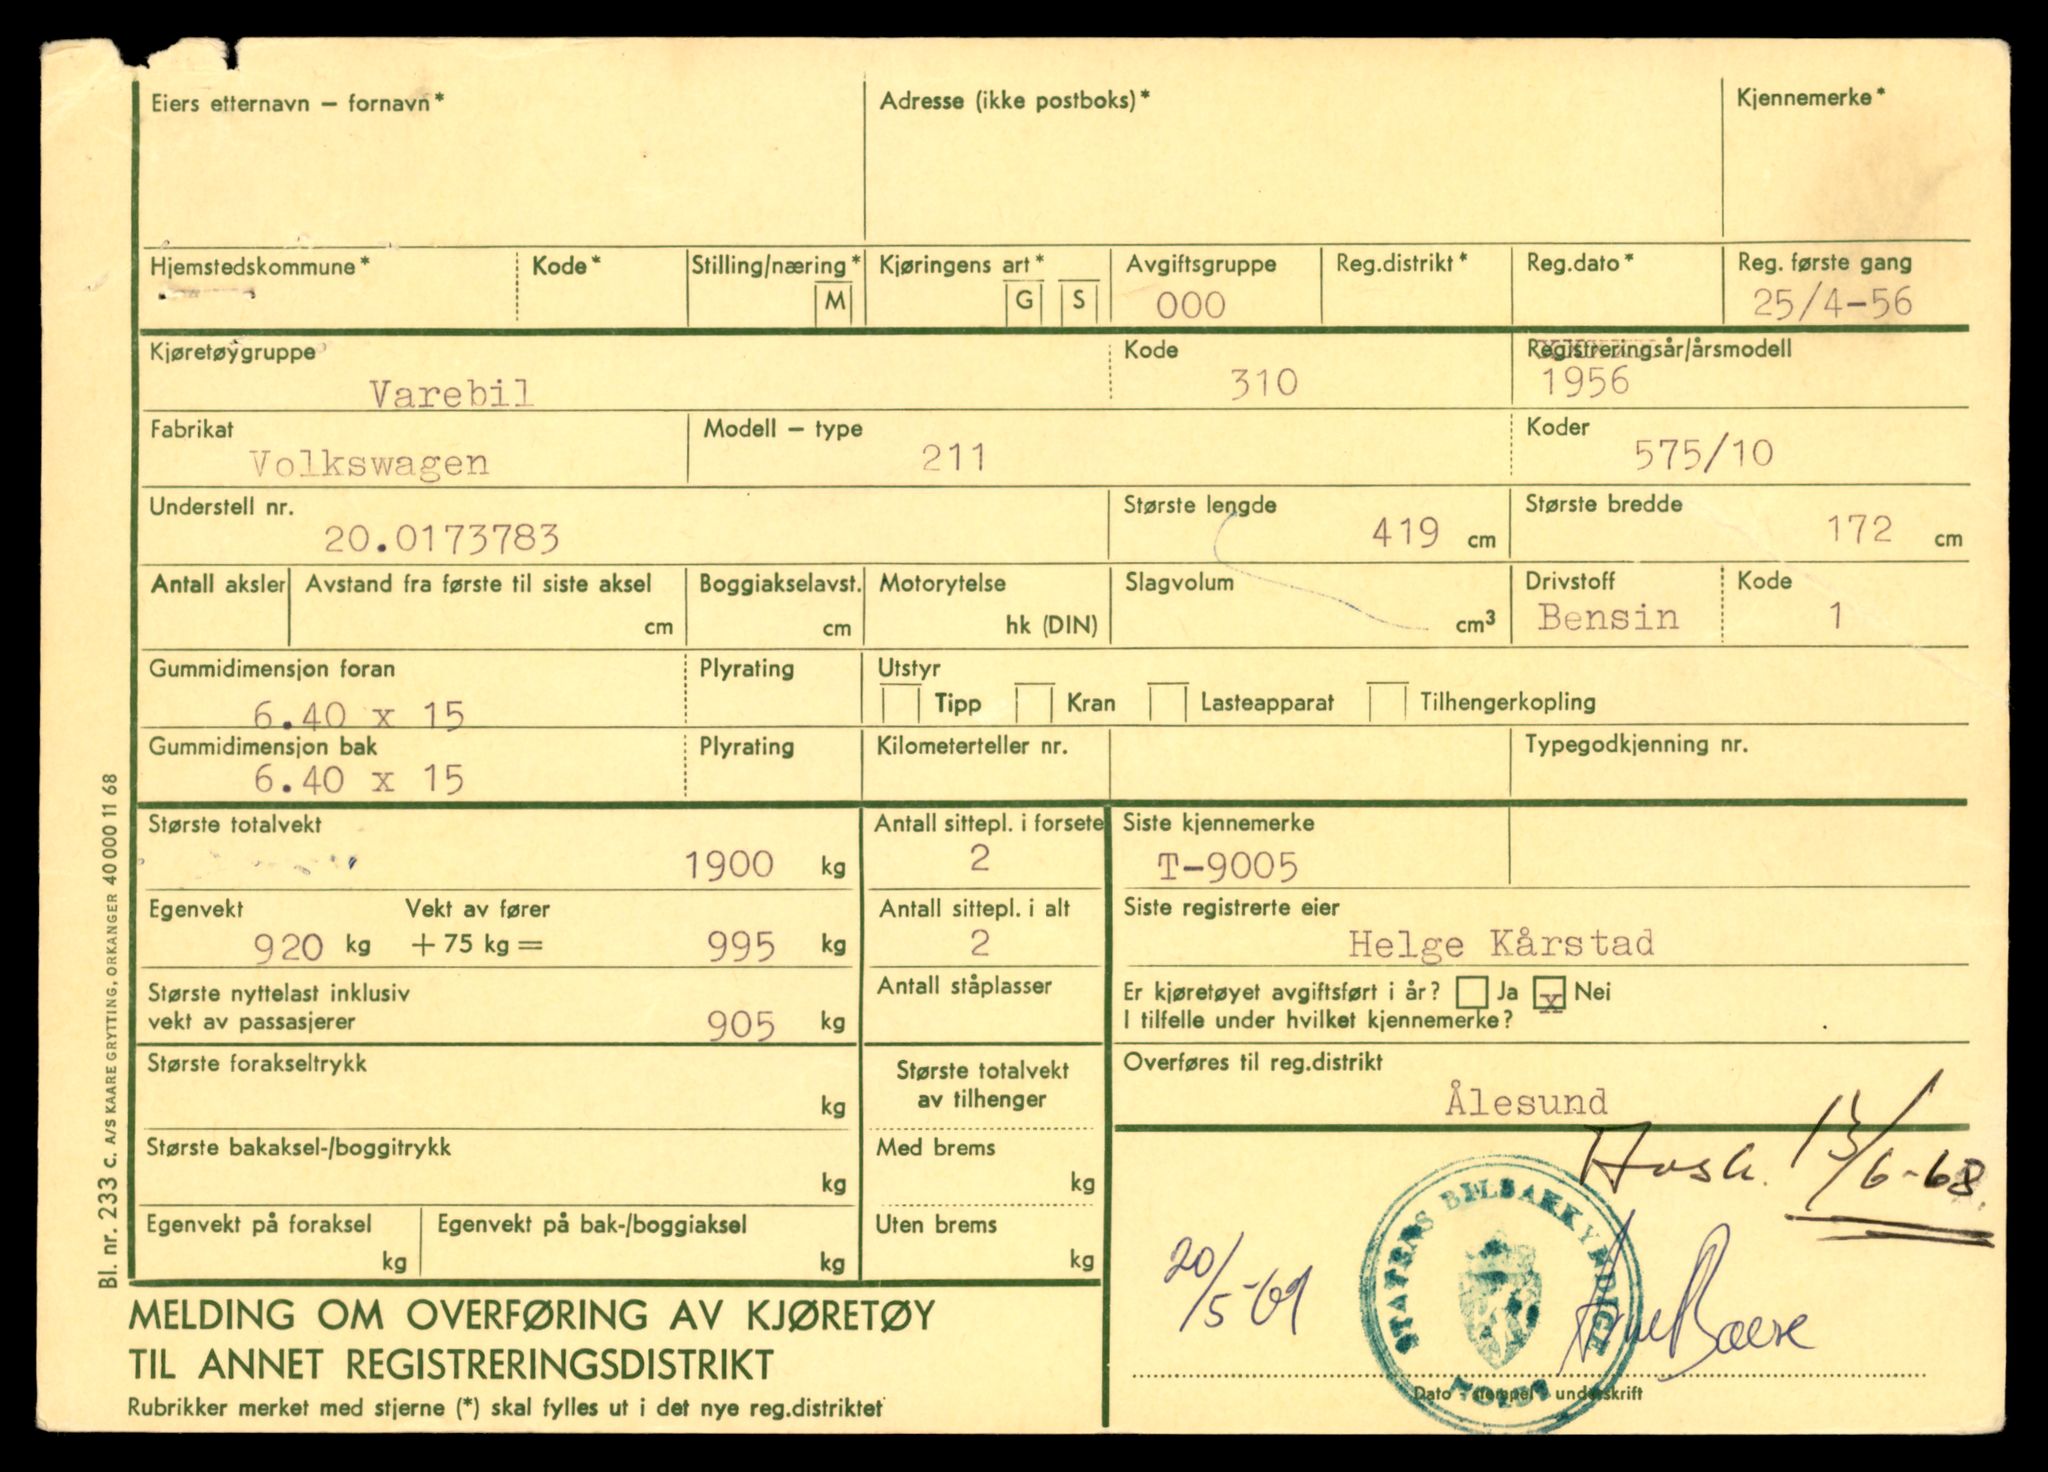 Eiers etternavn – fornavn*
Adresse (ikke postboks)*
Kjennemerke*
Hjemstedskommune*
Kode*
Stilling/næring*
M
Kjøringens art*
G
S
Avgiftsgruppe
000
Reg.distrikt*
Reg.dato*
Reg. første gang
25/4-56
Kjøretøygruppe
Varebil
Kode
310
Registreringsår/årsmodell
1956
Fabrikat
Volkswagen
Modell – type
211
Koder
575/10
Understell nr.
20.0173783
Største lengde
419 cm
Største bredde
172 cm
Antall aksler
Avstand fra første til siste aksel
cm
Boggiakselavst.
cm
Motorytelse
hk (DIN)
Slagvolum
cm3
Drivstoff
Bensin
Kode
1
Gummidimensjon foran
6.40 x 15
Plyrating
Utstyr
Tipp
Kran
Lasteapparat
Tilhengerkopling
Gummidimensjon bak
6.40 x 15
Plyrating
Kilometerteller nr.
Typegodkjenning nr.
Største totalvekt
1900 kg
Antall sittepl. i forsete
2
Siste kjennemerke
T-9005
Egenvekt
920 kg
Vekt av fører
+ 75 kg = 995 kg
Antall sittepl. i alt
2
Siste registrerte eier
Helge Kårstad
Største nyttelast inklusiv
vekt av passasjerer
905 kg
Antall ståplasser
Er kjøretøyet avgiftsført i år? Ja x Nei
I tilfelle under hvilket kjennemerke?
Største forakseltrykk
kg
Største totalvekt
av tilhenger
Overføres til reg.distrikt
Ålesund
Største bakaksel-/boggitrykk
kg
Med brems
kg
13/6-68.
Egenvekt på foraksel
kg
Egenvekt på bak-/boggiaksel
kg
Uten brems
kg
20/5-69
STATENS BILSAKKYNDIGE
MOLDE
Dato - stempel - underskrift
MELDING OM OVERFØRING AV KJØRETØY
TIL ANNET REGISTRERINGSDISTRIKT
Rubrikker merket med stjerne (*) skal fylles ut i det nye reg.distriktet
Bl. nr. 233 c. A/S KAARE GRYTTING, ORKANGER 40 000 11 68